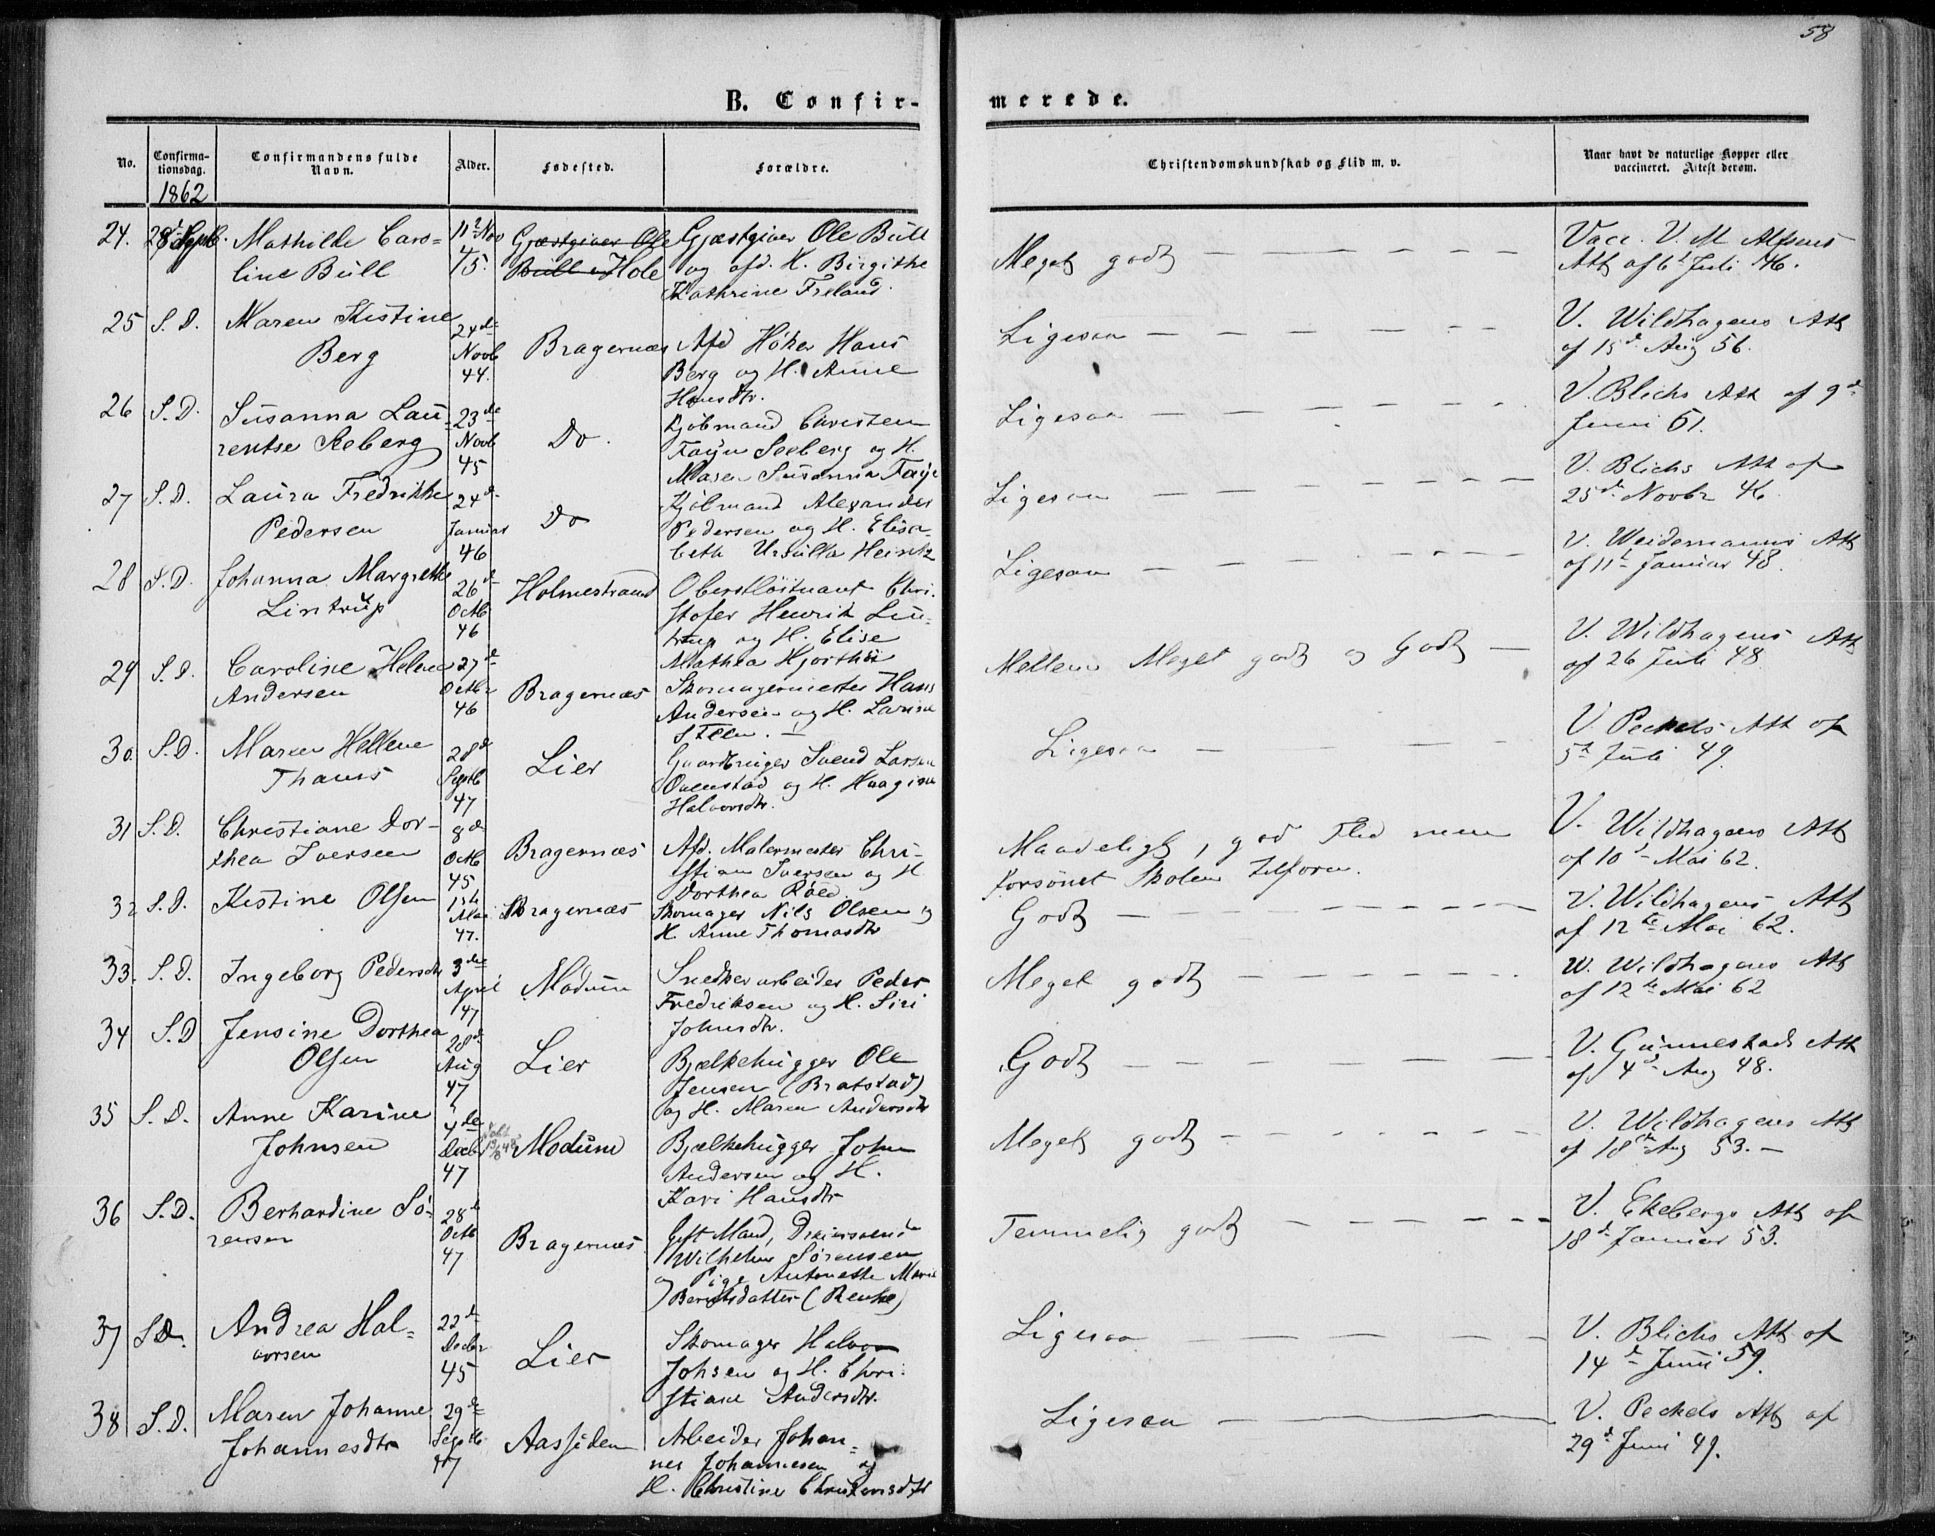 58
B. Confir-
merede.
No.
Confirma-
tionsdag.
Confirmandens fulde
Navn.
Alder.
Fødested.
Forældre.
Christendomskundskab og Flid m. v.
Naar havt de naturlige Kopper eller
vaccineret. Attest derom.
1862
24. 28de Septb. Mathilde Caro-
line Bull
11te Nov
45.
Gjæstgiver Ole
Bull Hole
Gjæstgiver Ole Bull
og afd. H. Birgithe
Kathrine Freland.
Meget godt
Vacc. V. M. Alfsens
Att af 6t Juli 46.
25 S. D. Maren Kistine
Berg
24de
Novb
44.
Bragernæs
Afd Høker Hans
Berg og H. Anne
Hansdtr.
Ligesaa
V. Wildhagens Att
af 15d Aug 56.
26 S. D. Susanna Lau-
rentse Seeberg
23de
Novb
45
Do.
Kjøbmand Christen
Faye Seeberg og H.
Maren Susanna Faye
Ligesaa
V. Blichs Att af 9d
Juni 61.
27 S. D. Laura Fredrikke
Pedersen
24d
Januar
46
Do
Kjøbmand Alexander
Pedersen og H. Elisa-
beth Ursulla Heintz
Ligesaa
V. Blichs Att af
25d Novbr 46
28 S. D. Johanna Margrethe
Lintrup
26d
Octb
46
Holmestrand
Oberstløitnant Chri-
stofer Henrik Lin-
trup og H. Elise
Mathea Hjorthøi
Ligesaa
V. Weidemanns Att
af 11t Januar 48.
29 S. D. Caroline Helene
Andersen
27d
Octbr
46
Bragernæs
Skomagermester Hans
Andersen og H. Larine
Steen.
Mellem Meget godt og Godt
V. Wildhagens Att
af 26 Juli 48
30 S. D. Maren Hellene
Thams
28d
Septb
47
Lier
Gaardbruger Svend Larsen
Ovenstad og H. Haagine
Halvorsdtr.
Ligesaa
V Peckels Att af
5t Juli 49.
31 S. D. Christiane Dor-
thea Iversen
8d
Octb
45
Bragernæs
Afd. Malermester Chri-
stian Iversen og H
Dorthea Røed
Maadeligt, god Flid men
forsømt Skolen tilforn.
V. Wildhagens Att
af 10d Mai 62.
32 S. D. Kistine Olsen
15t
Mai
47.
Bragernæs
Skomager Nils Olsen og
H. Anne Thomasdtr
Godt
V. Wildhagens Att
af 12te Mai 62.
33. S. D. Ingeborg Pedersdtr
3die
April
47
Modum
Snedkerarbeider Peder
Fredriksen og H. Siri
Johnsdtr.
Meget godt
W. Wildhagens Att
af 12te Mai 62
34 S. D Jensine Dorthea
Olsen
28d
Aug
47
Lier
Bjælkehugger Ole
Jensen (Bratstad)
og H. Maren Andersdtr
Godt
V. Gunnestads Att
af 4d Aug 48.
35 S. D. Anne Karine
Johnsen
4de
Decb
47
Modum
Bjælkehugger John
Andersen og H.
Kari Hansdtr
Meget godt
V. Wildhagens Att
af 18d Aug 53.
36 S. D. Berhardine Sø-
rensen
28d
Octb
47
Bragernæs
Gift Mand, Dreiersvend
Wilhelm Sørensen
og Pige Antonette Marie
Berntsdatter (Renhe)
Temmelig godt
V. Ekebergs Att af
18d Januar 53.
37 S. D. Andrea Hal-
vorsen
22d
Decbr
45
Lier
Skomager Halvor
Johsen og H. Chri-
stiane Andersdtr.
Ligesaa
V. Blichs Att af
14d Juni 59.
38 S. D. Maren Johanne
Johannesdtr
29d
Septb
47
Aassiden
Arbeider Johan-
nes Johannesen og
H. Christine Christensdtr
Ligesaa
V. Peckels Att af
29d Juni 49.